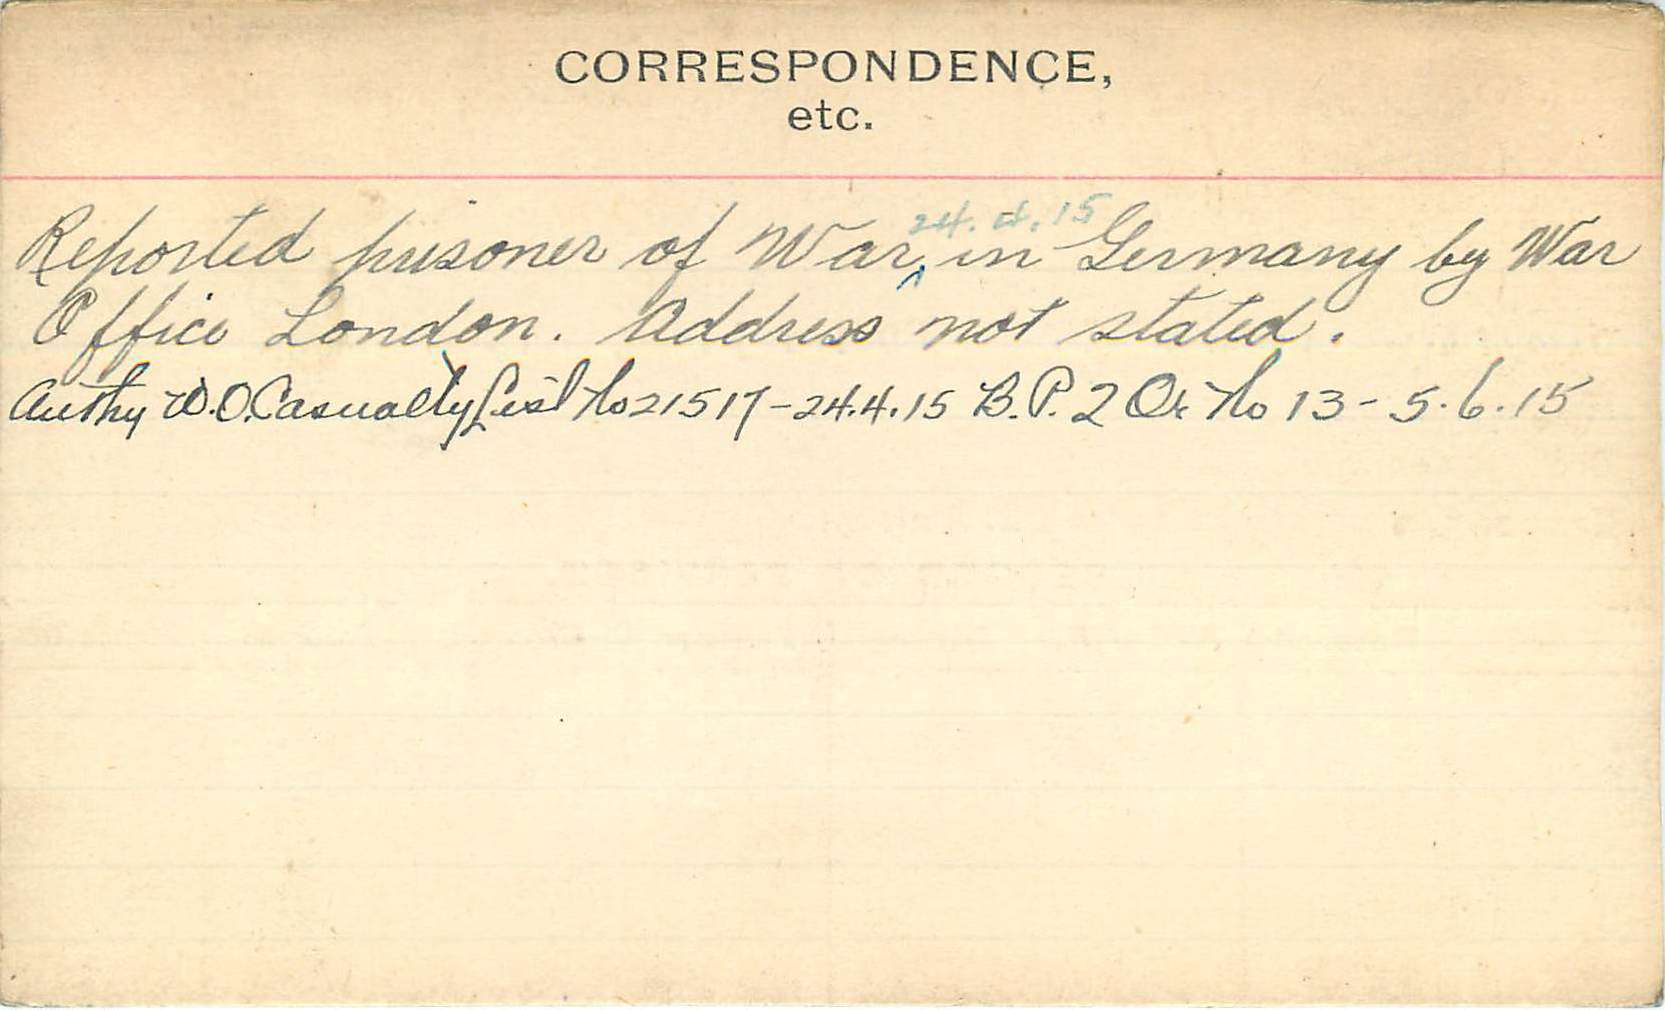 CORRESPONDENCE,
etc.
Reported prisoner of War 24.4.15 in Germany by War
Office London. Address not stated.
Authy W.O. Casualty List No 21517-24.4.15 B.P. 2 Or No 13-5.6.15